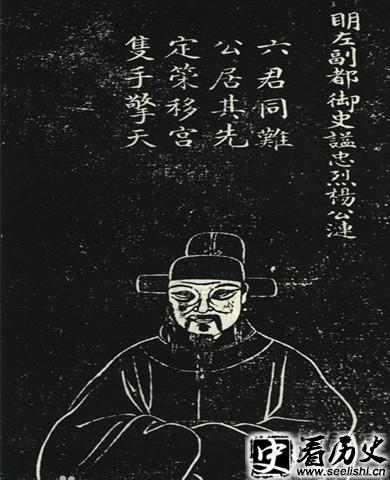 明左副都御史謚忠烈楊公漣
六君同難
公居其先
定策移宮
隻手擎天
史看历史
www.seelishi.cn